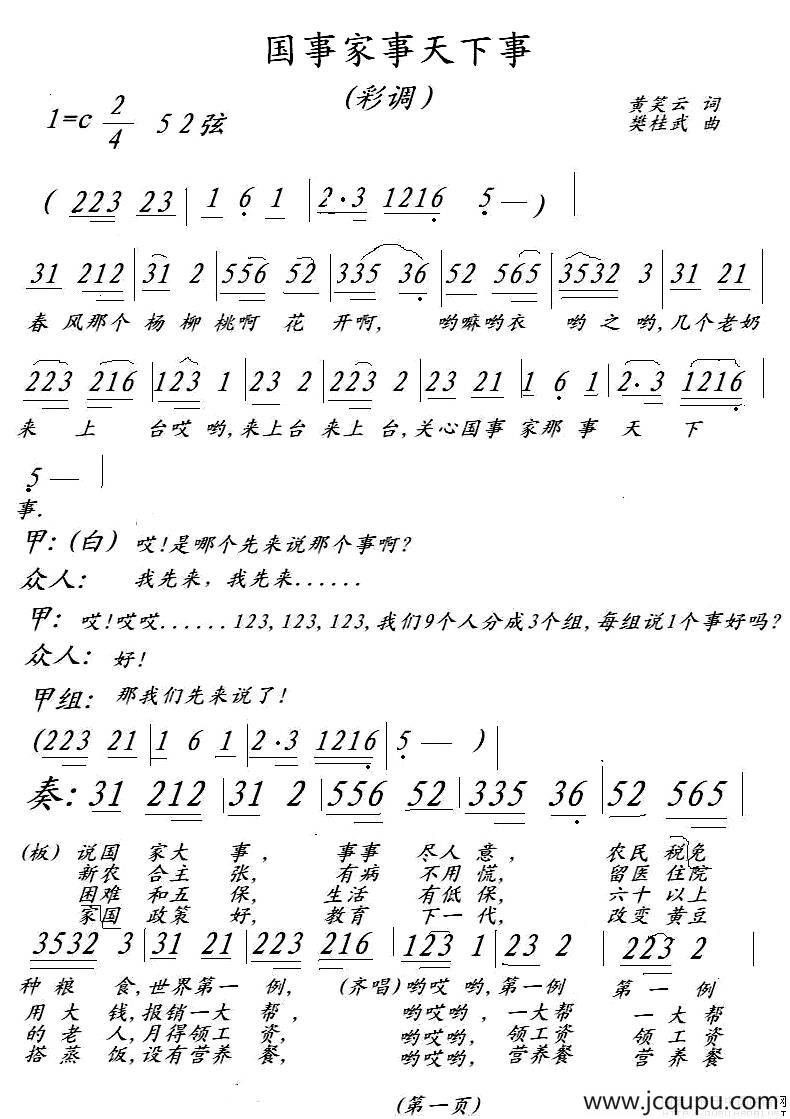 国事家事天下事
(彩调)
1=c 2/4 52弦
黄笑云 词
樊桂武 曲
( 223 23 | 1 6 1 | 2·3 1216 5 — ) |
31 212 | 31 2 | 556 52 | 335 36 | 52 565 | 3532 3 | 31 21
春风那个杨柳桃啊 花 开啊, 哟嘛哟衣 哟之哟,几个老奶
223 216 | 123 1 | 23 2 | 223 2 | 23 21 | 1 6 1 | 2·3 1216
来 上 台哎哟,来上台来上台,关心国事家那事天下
5 — |
事.
甲:(白) 哎!是哪个先来说那个事啊?
众人: 我先来，我先来......
甲: 哎!哎哎......123,123,123,我们9个人分成3个组,每组说1个事好吗?
众人: 好!
甲组: 那我们先来说了!
(223 21 | 1 6 1 | 2·3 1216 | 5 — )
奏: 31 212 | 31 2 | 556 52 | 335 36 | 52 565 |
(板) 说国 家大 事， 事事 尽人意， 农民 税免
新农 合主 张, 有病 不用慌, 留医 住院
困难 和五 保, 生活 有低保, 六十 以上
家国 政策 好, 教育 下一代, 改变 黄豆
3532 3 | 31 21 | 223 216 | 123 1 | 23 2 | 223 2
种粮 食,世界第一 例, (齐唱)哟哎哟,第一例 第一例
用大 钱,报销一大 帮， 哟哎哟，一大帮 一大帮
的老 人,月得领工 资, 哟哎哟, 领工资 领工资
搭蒸 饭,设有营养 餐, 哟哎哟, 营养餐 营养餐
(第一页)
www.jcqupu.com